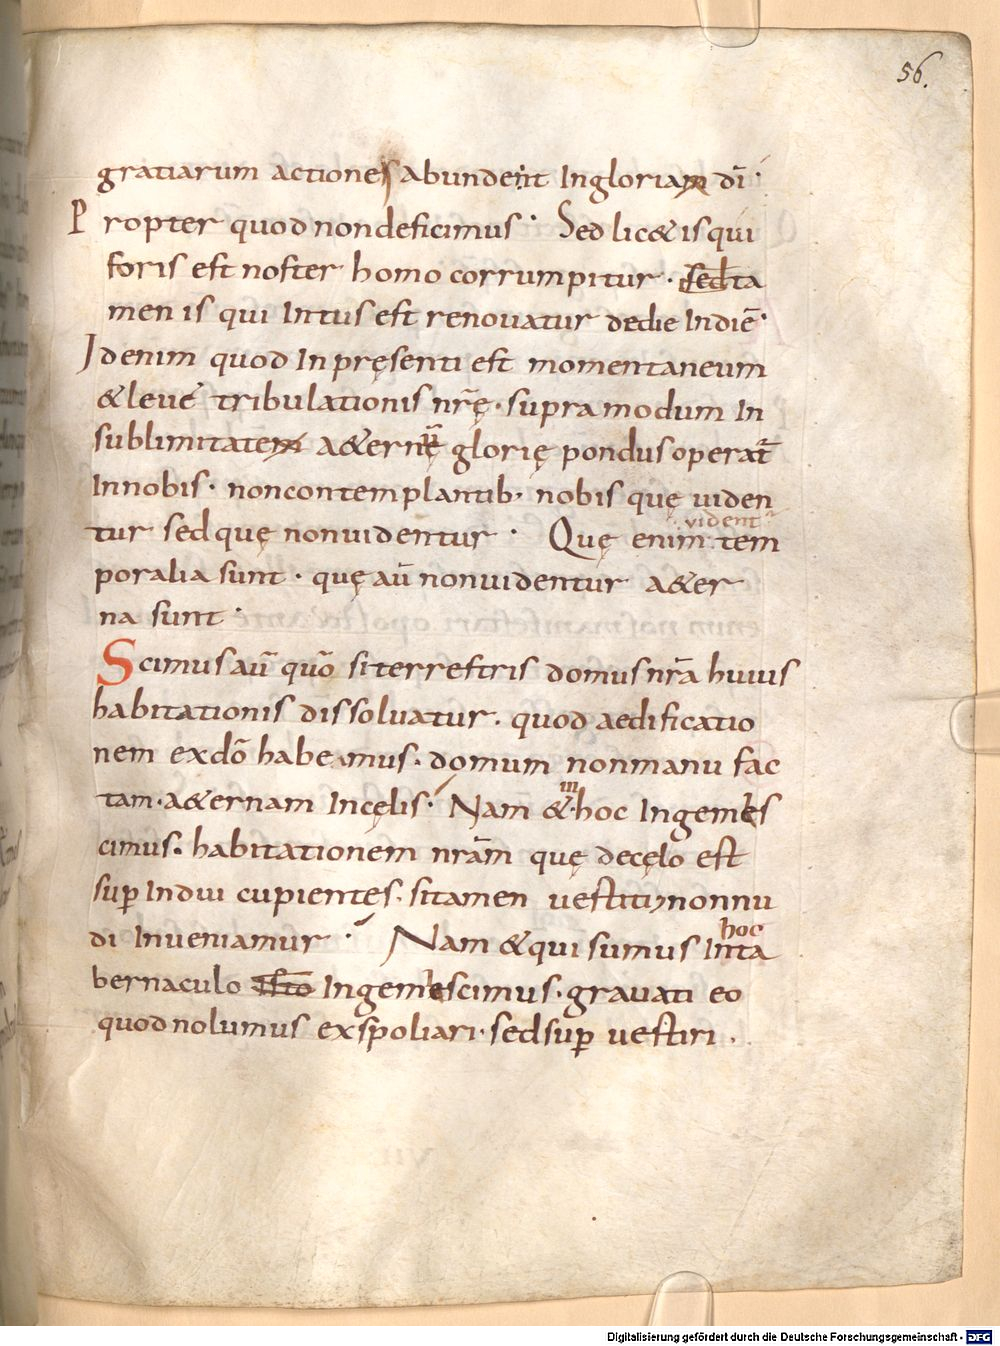 56.
gratiarum actiones abundent Ingloriam dī·
Propter quod nondeficimus· Sed lic& is qui
foris est noster homo corrumpitur· sed ta
men is qui Intus est renouatur dedie Indiē·
Idenim quod In pręsenti est momentaneum
&leue tribulationis nr̄ę· supra modum In
sublimitatem a&ernę glorię pondus operat̄
Innobis· noncontemplantib; nobis quę uiden
tur sed quę nonuidentur· Quę enim uident̄ tem
poralia sunt· quę aū nonuidentur a&er
na sunt·
Scimus aū quō si terrestris domus nr̄a huius
habitationis dissoluatur· quod aedificatio
nem exdō habemus· domum nonmanu fac
tam· a&ernam Incęlis· Nam & in hoc Ingemis
cimus· habitationem nr̄am quę decęlo est
sup̄ Indui cupientes· si tamen uestiti nonnu
di Inueniamur· Nam & qui sumus In hoc ta
bernaculo isto Ingemiscimus· grauati eo
quod nolumus exspoliari· sed sup̄ uestiri·
Digitalisierung gefördert durch die Deutsche Forschungsgemeinschaft - DFG